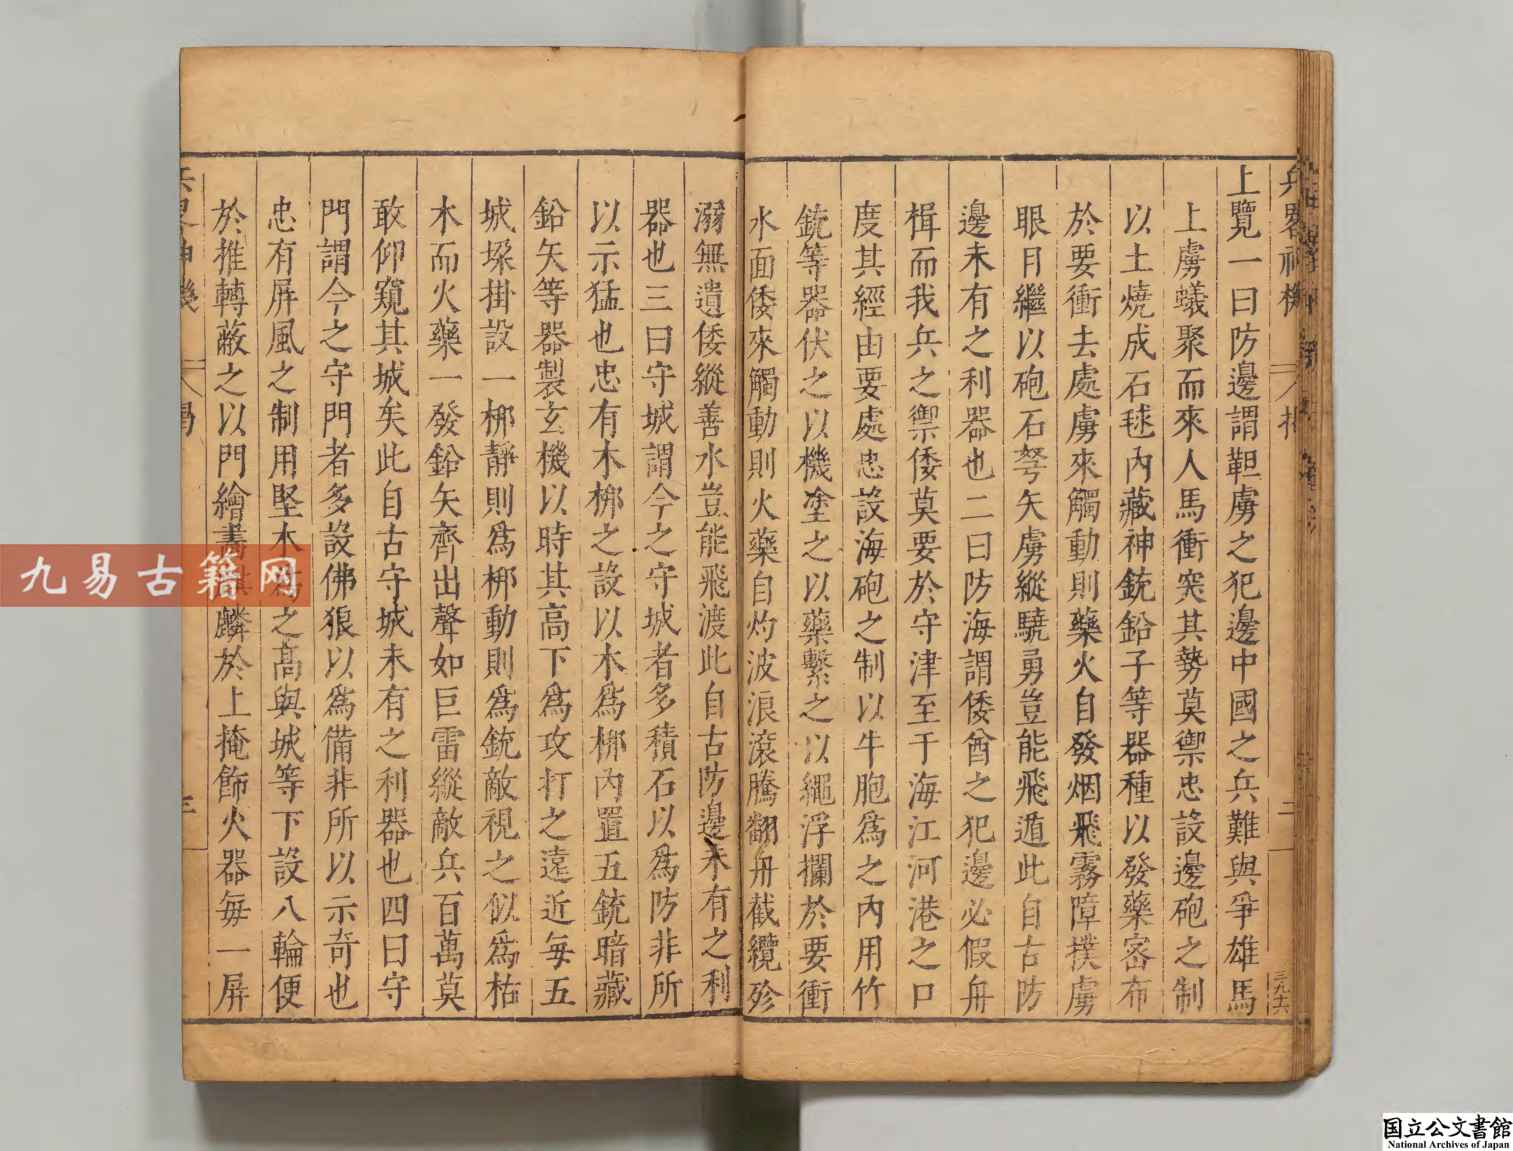 上覽一曰防邊謂靼虜之犯邊中國之兵難與爭雄馬
上虜蟻聚而來人馬衝突其勢莫禦忠設邊砲之制
以土燒成石毬內藏神銃鉛子等器種以發藥密布
於要衝去處虜來觸動則藥火自發烟飛霧障撲虜
眼目繼以砲石弩矢虜縱驍勇豈能飛遁此自古防
邊未有之利器也二曰防海謂倭酋之犯邊必假舟
楫而我兵之禦倭莫要於守津至于海江河港之口
度其經由要處忠設海砲之制以牛胞為之內用竹
銃等器伏之以機塗之以藥繫之以繩浮攔於要衝
水面倭來觸動則火藥自灼波浪滾騰翻舟截纜殄
溺無遺倭縱善水豈能飛渡此自古防邊未有之利
器也三曰守城謂今之守城者多積石以為防非所
以示猛也忠有木梆之設以木為梆內置五銃暗藏
鉛矢等器製玄機以時其高下為攻打之遠近每五
城垜掛設一梆靜則為梆動則為銃敵視之似為枯
木而火藥一發鉛矢齊出聲如巨雷縱敵兵百萬莫
敢仰窺其城矣此自古守城未有之利器也四曰守
門謂今之守門者多設佛狼以為備非所以示奇也
忠有屏風之制用堅木為之高與城等下設八輪便
於推轉蔽之以門繪畫麒麟於上掩飾火器每一屏
三
九易古籍网
国立公文書館
National Archives of Japan